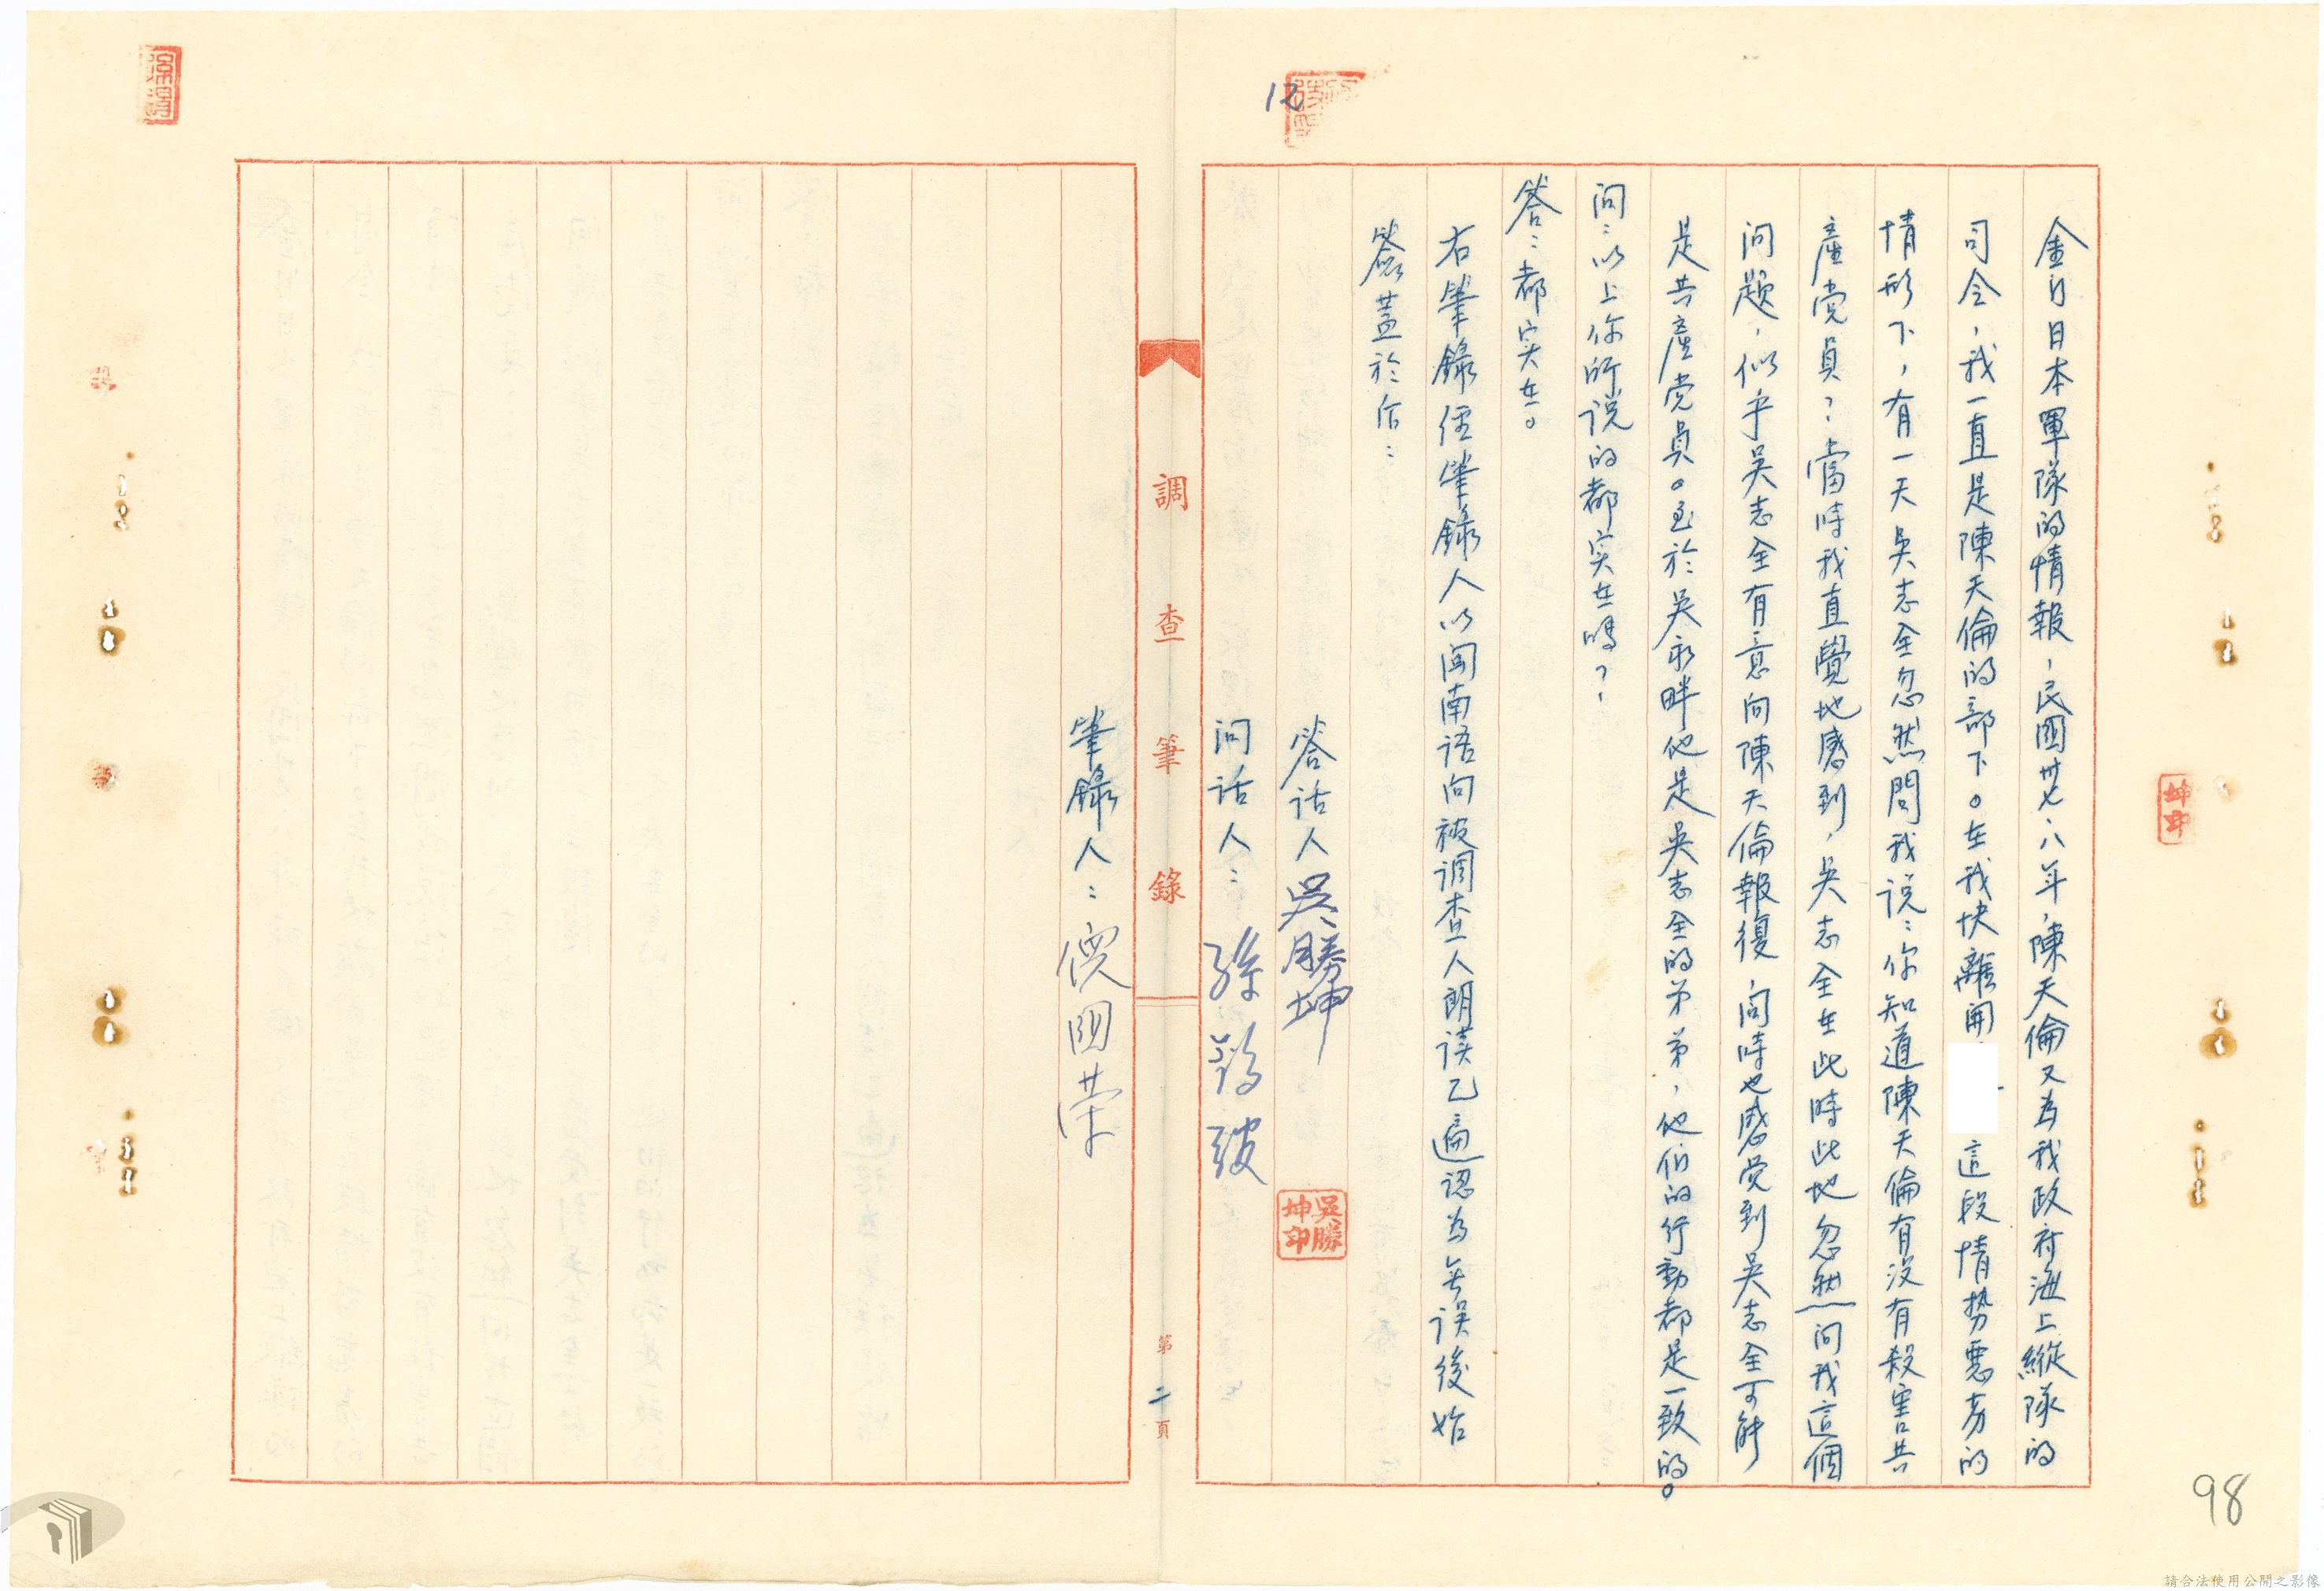 金的日本軍隊的情報，民國卅七、八年，陳天倫又為我政府海上縱隊的
司令，我一直是陳天倫的部下。在我快離開 這段情勢惡劣的
情形下，有一天吳志全忽然問我說：你知道陳天倫有沒有殺害共
產党員？當時我直覺地感到，吳志全在此時此地忽然问我這個
问題，似乎吳志全有意向陳天倫報復，同時也感觉到吳志全可能
是共產党員。至於吳永畔他是吳志全的弟弟，他们的行動都是一致的。
问：以上你所说的都实在嗎？
答：都实在。
右筆錄经筆錄人以闽南语向被调查人朗读乙遍認為无误後始
簽蓋於后：
答话人 吳勝坤
吳勝坤印
问话人：
筆錄人：倪国荣
調查筆錄
第二頁
坤印
12
98
請合法使用公開之影像